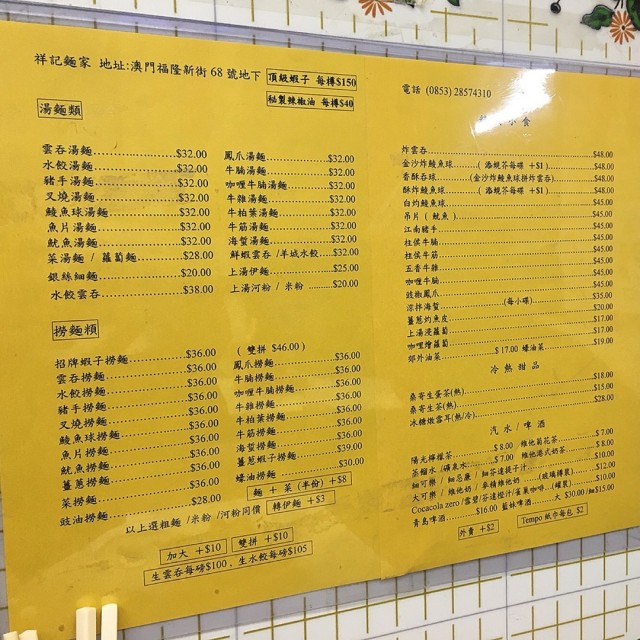 祥記麵家 地址:澳門福隆新街 68 號地下
頂級蝦子 每樽$150
秘製辣椒油 每樽$40
湯麵類
雲吞湯麵 $32.00
水餃湯麵 $32.00
豬手湯麵 $32.00
叉燒湯麵 $32.00
鯪魚球湯麵 $32.00
魚片湯麵 $32.00
魷魚湯麵 $32.00
菜湯麵 / 蘿蔔麵 $28.00
銀絲細麵 $20.00
水餃雲吞 $38.00
鳳爪湯麵 $32.00
牛腩湯麵 $32.00
咖喱牛腩湯麵 $32.00
牛雜湯麵 $32.00
牛柏葉湯麵 $32.00
牛筋湯麵 $32.00
海蜇湯麵 $32.00
鮮蝦雲吞 /羊城水餃 $32.00
上湯伊麵 $25.00
上湯河粉 / 米粉 $20.00
撈麵類
招牌蝦子撈麵 $36.00
雲吞撈麵 $36.00
水餃撈麵 $36.00
豬手撈麵 $36.00
叉燒撈麵 $36.00
鯪魚球撈麵 $36.00
魚片撈麵 $36.00
魷魚撈麵 $36.00
薑蔥撈麵 $36.00
菜撈麵 $36.00
豉油撈麵 $28.00
( 雙拼 $46.00 )
鳳爪撈麵 $36.00
牛腩撈麵 $36.00
咖喱牛腩撈麵 $36.00
牛雜撈麵 $36.00
牛柏葉撈麵 $36.00
牛筋撈麵 $36.00
海蜇撈麵 $36.00
薑蔥蝦子撈麵 $39.00
蠔油撈麵 $30.00
麵 + 菜 (半份) +$8
以上選粗麵 /米粉 /河粉同價 轉伊麵 +$3
加大 +$10 雙拼 +$10
生雲吞每磅$100 , 生水餃每磅$105
電話 (0853) 28574310
小食
炸雲吞 $48.00
金沙炸鯪魚球 ( 添蜆芥每碟 +$1 ) $48.00
香酥春球 (金沙炸鯪魚球拼炸雲吞) $48.00
酥炸鯪魚球 ( 添蜆芥每碟 +$1 ) $48.00
白灼鯪魚球 $45.00
吊片 ( 魷魚 ) $45.00
江南豬手 $45.00
柱侯牛腩 $45.00
柱侯牛筋 $45.00
五香牛雜 $45.00
咖喱牛腩 $45.00
豉椒鳳爪 $45.00
涼拌海蜇 (每小碟) $35.00
薑蔥灼魚皮 $20.00
上湯浸蘿蔔 $17.00
咖喱燴蘿蔔 $17.00
郊外油菜 $ 17.00 蠔油菜 $19.00
冷 熱 甜 品
桑寄生蛋茶(熱) $18.00
桑寄生茶(熱) $15.00
冰糖燉雪耳(熱/冷) $28.00
汽 水 / 啤 酒
陽光檸檬茶 $ 8.00 維他菊花茶 $ 7.00
菜榴水 / 礦泉水 $ 7.00 維他港式奶茶 $ 8.00
細可樂 / 細忌廉 / 細芬達提子汁 $10.00
大可樂 / 維他奶 / 麥精維他奶 (玻璃樽裝) $12.00
Cocacola zero /雪碧/芬達橙汁/雀巢咖啡 (罐裝) $10.00
青島啤酒 $16.00 藍妹啤酒 大 $30.00 /細$15.00
外賣 +$2 Tempo 紙巾每包 $2